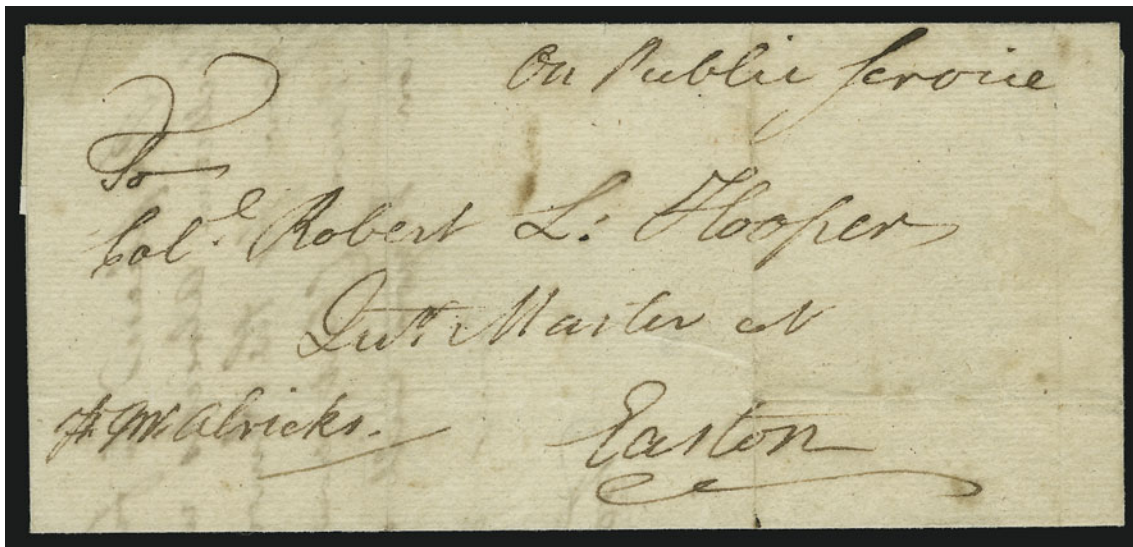 On Public Service
To
Col.l Robert L: Hooper
Qur. Master at
Easton
pr. Mr. Alricks.